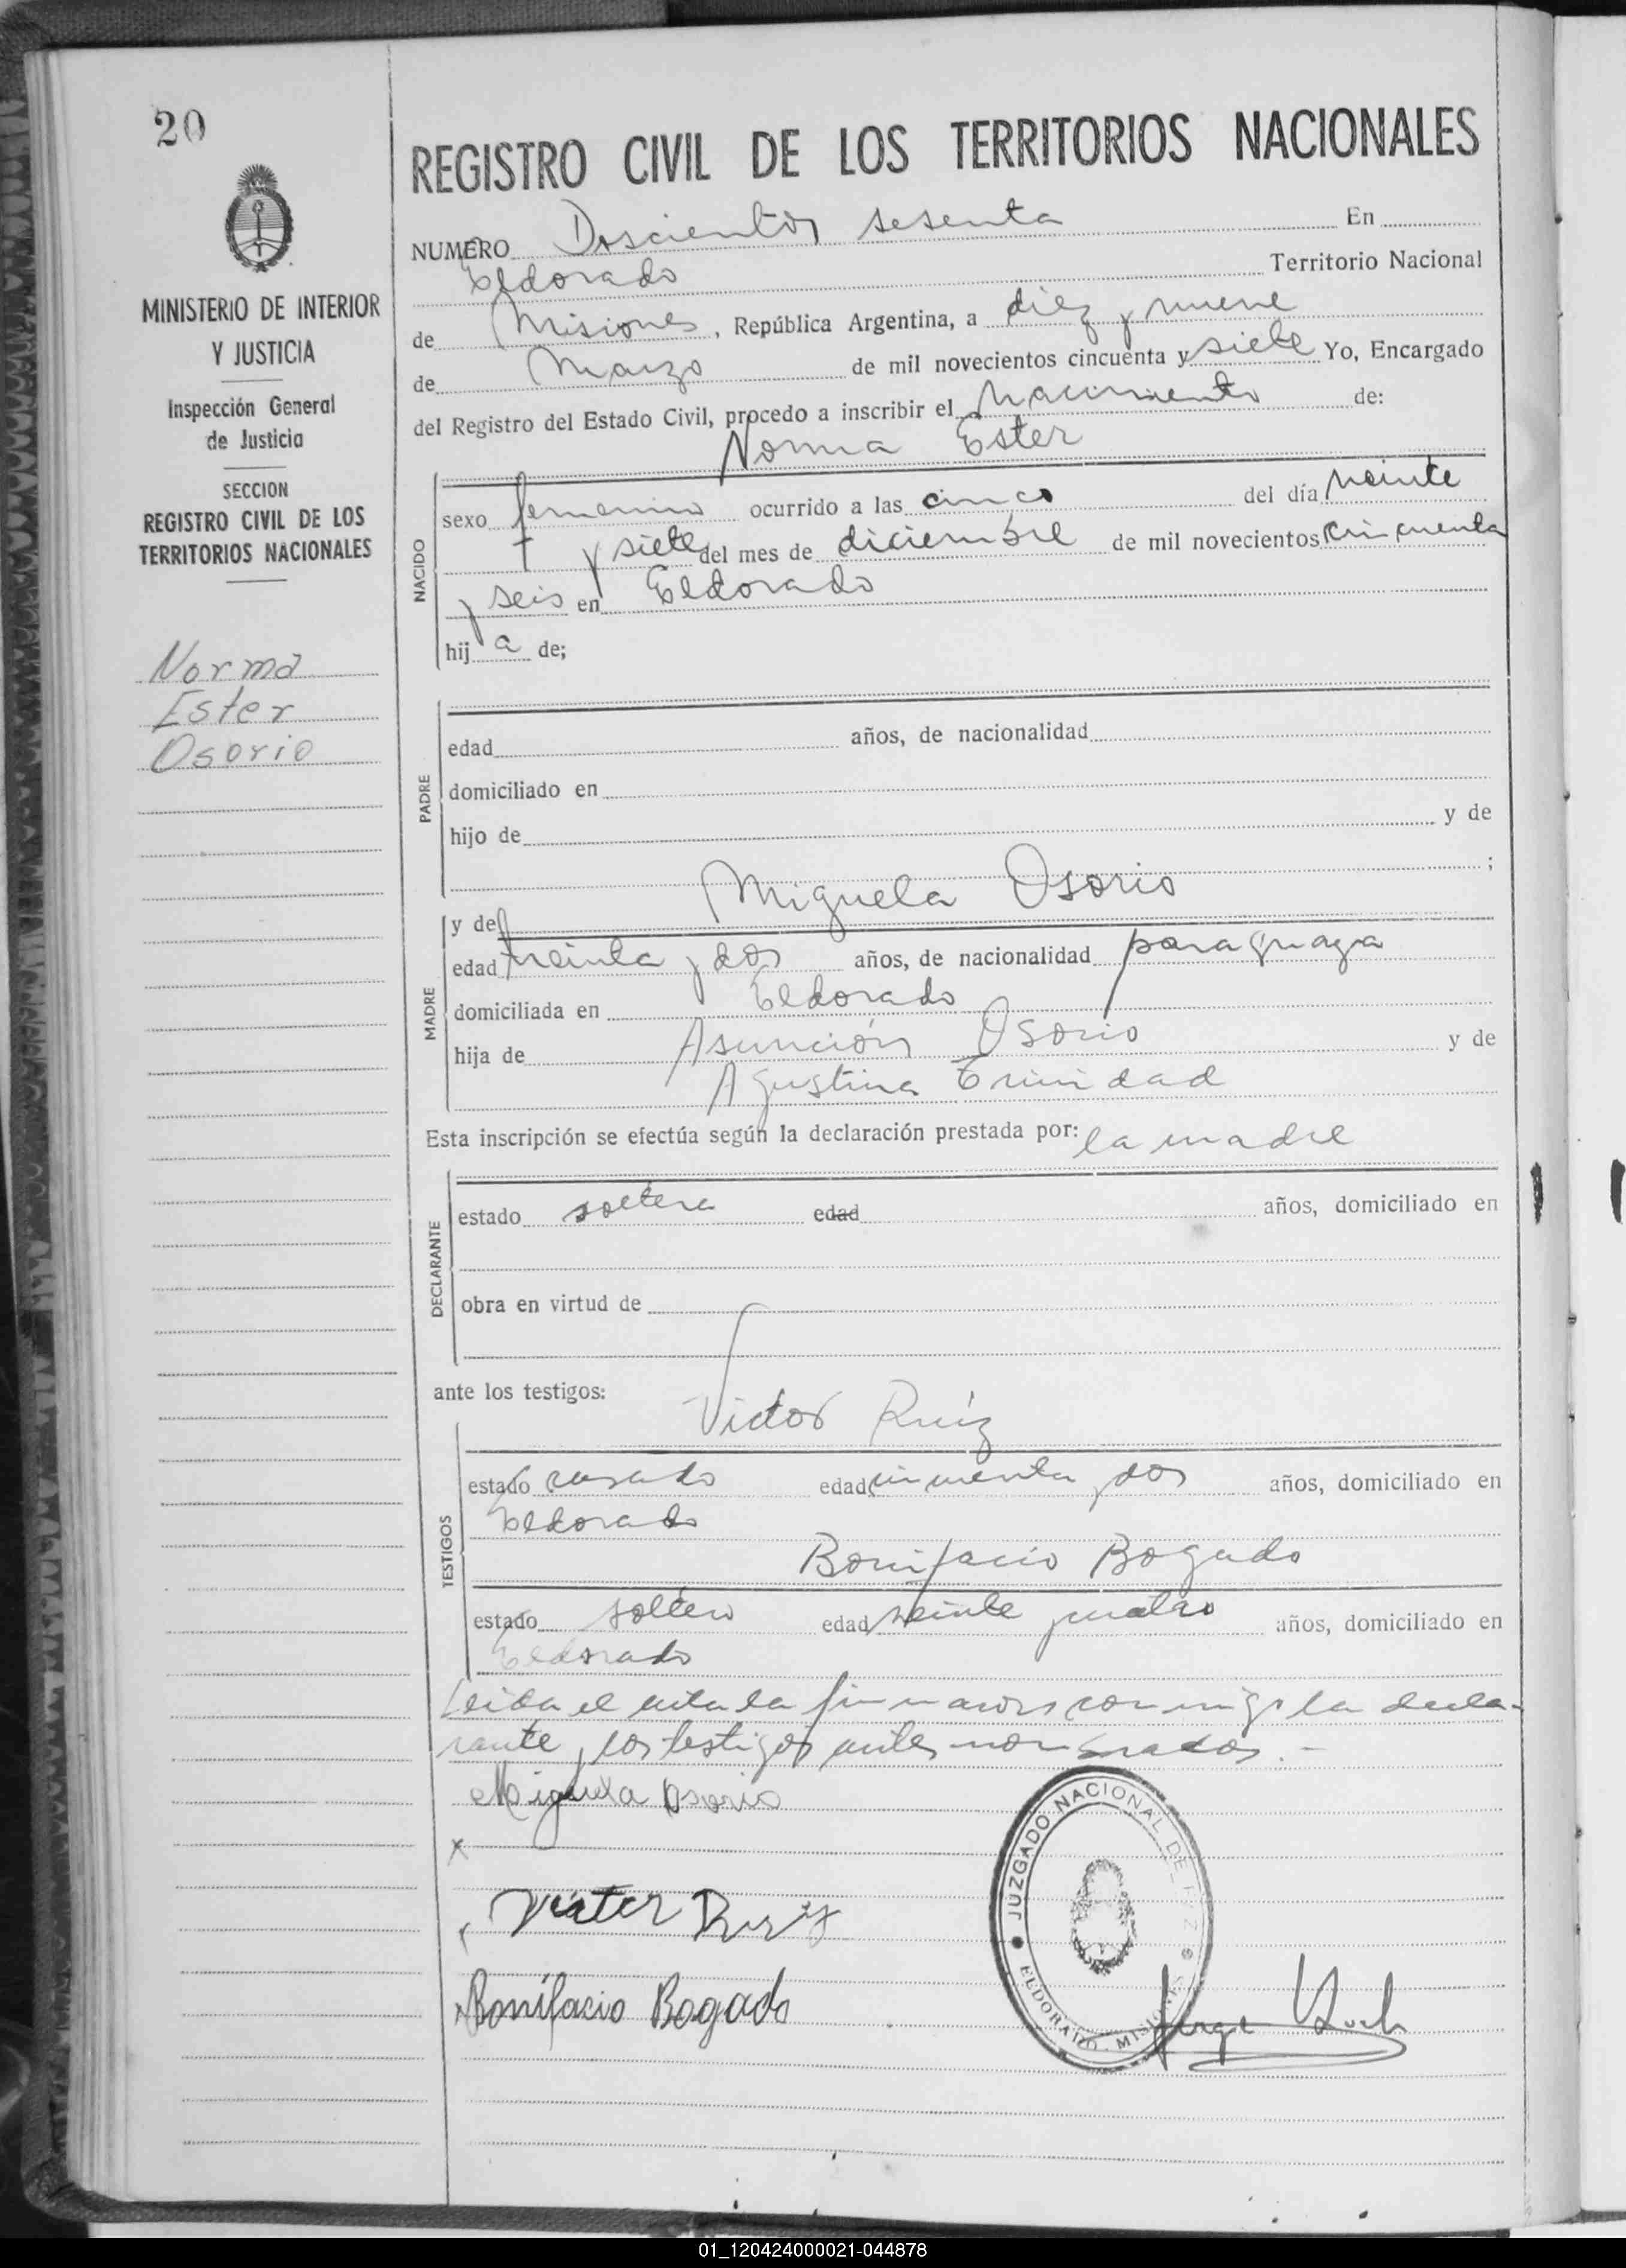 20
MINISTERIO DE INTERIOR
Y JUSTICIA
Inspección General
de Justicia
SECCION
REGISTRO CIVIL DE LOS
TERRITORIOS NACIONALES
Norma
Ester
Osorio
REGISTRO CIVIL DE LOS TERRITORIOS NACIONALES
NUMERO Doscientos sesenta En
Eldorado Territorio Nacional
de Misiones, República Argentina, a diez y nueve
de Marzo de mil novecientos cincuenta y siete Yo, Encargado
del Registro del Estado Civil, procedo a inscribir el nacimiento de:
Norma Ester
NACIDO
sexo femenino ocurrido a las cinco del día veinte
y siete del mes de diciembre de mil novecientos cincuenta
y seis en Eldorado
hij a de;
PADRE
edad años, de nacionalidad
domiciliado en
hijo de y de
;
MADRE
y de Miguela Osorio
edad treinta y dos años, de nacionalidad paraguaya
domiciliada en Eldorado
hija de Asunción Osorio y de
Agustina Trinidad
Esta inscripción se efectúa según la declaración prestada por: la madre
DECLARANTE
estado soltera edad años, domiciliado en
obra en virtud de
ante los testigos:
TESTIGOS
Victor Ruiz
estado casado edad cincuenta y dos años, domiciliado en
Eldorado
Bonifacio Bogado
estado soltero edad veinte y cuatro años, domiciliado en
Eldorado
Leída el acta la firmaron conmigo la decla-
rante y los testigos antes nombrados.-
Miguela Osorio
x
Victer Ruiz
Bonifacio Bogado
JUZGADO NACIONAL DE PAZ
ELDORADO - MISIONES
Jorge
01_120424000021-044878